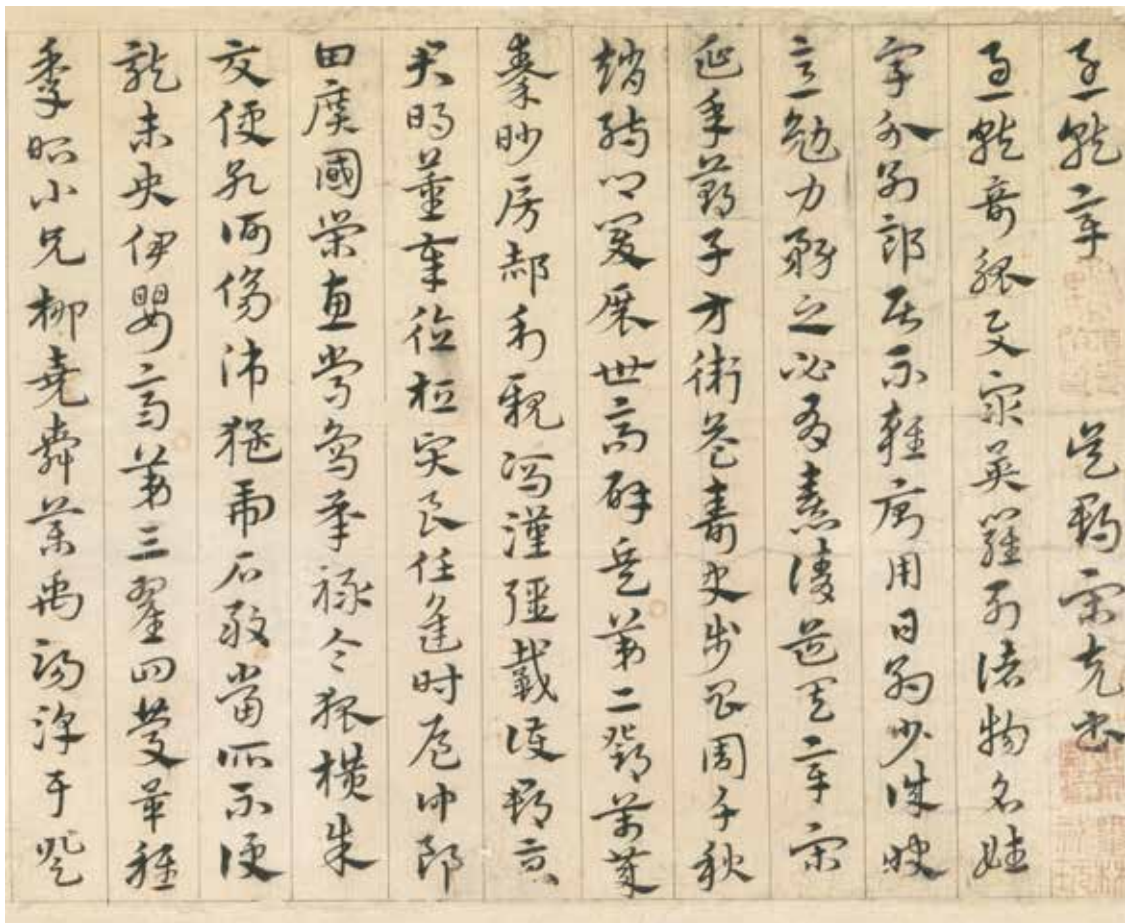 急就章 吳郡宋克書
急就奇觚與衆異羅列諸物名姓
字分別部居不雜廁用日約少誠快
意勉力務之必有憙請道其章宋
延年鄭子方衛益壽史步昌周千秋
趙孺卿爰展世高辟兵第二鄧萬歲
秦眇房郝利親馮漢彊戴護郡景
君明董奉德桓賢良任逢時侯仲郎
田廣國榮惠常烏承祿令狐橫朱
交便孔何傷師猛虎石敢當所不侵
龍未央伊嬰齊第三翟回慶畢稚
季昭小兄柳堯舜藥禹湯淳于登